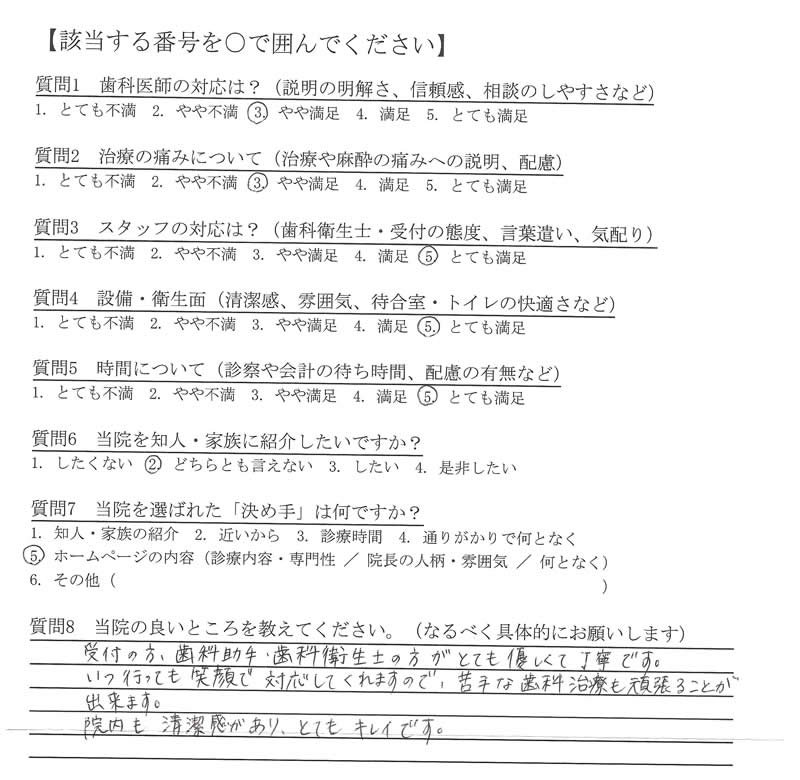 【該当する番号を〇で囲んでください】
質問1　歯科医師の対応は？（説明の明解さ、信頼感、相談のしやすさなど）
1. とても不満　2. やや不満　3. やや満足　4. 満足　5. とても満足
質問2　治療の痛みについて（治療や麻酔の痛みへの説明、配慮）
1. とても不満　2. やや不満　3. やや満足　4. 満足　5. とても満足
質問3　スタッフの対応は？（歯科衛生士・受付の態度、言葉遣い、気配り）
1. とても不満　2. やや不満　3. やや満足　4. 満足　5. とても満足
質問4　設備・衛生面（清潔感、雰囲気、待合室・トイレの快適さなど）
1. とても不満　2. やや不満　3. やや満足　4. 満足　5. とても満足
質問5　時間について（診察や会計の待ち時間、配慮の有無など）
1. とても不満　2. やや不満　3. やや満足　4. 満足　5. とても満足
質問6　当院を知人・家族に紹介したいですか？
1. したくない　2. どちらとも言えない　3. したい　4. 是非したい
質問7　当院を選ばれた「決め手」は何ですか？
1. 知人・家族の紹介　2. 近いから　3. 診療時間　4. 通りがかりで何となく
5. ホームページの内容（診療内容・専門性 ／ 院長の人柄・雰囲気 ／ 何となく）
6. その他（　　　）
質問8　当院の良いところを教えてください。（なるべく具体的にお願いします）
受付の方、歯科助手・歯科衛生士の方がとても優しくて丁寧です。
いつ行っても笑顔で対応してくれますので、苦手な歯科治療も頑張ることが
出来ます。
院内も清潔感があり、とてもキレイです。